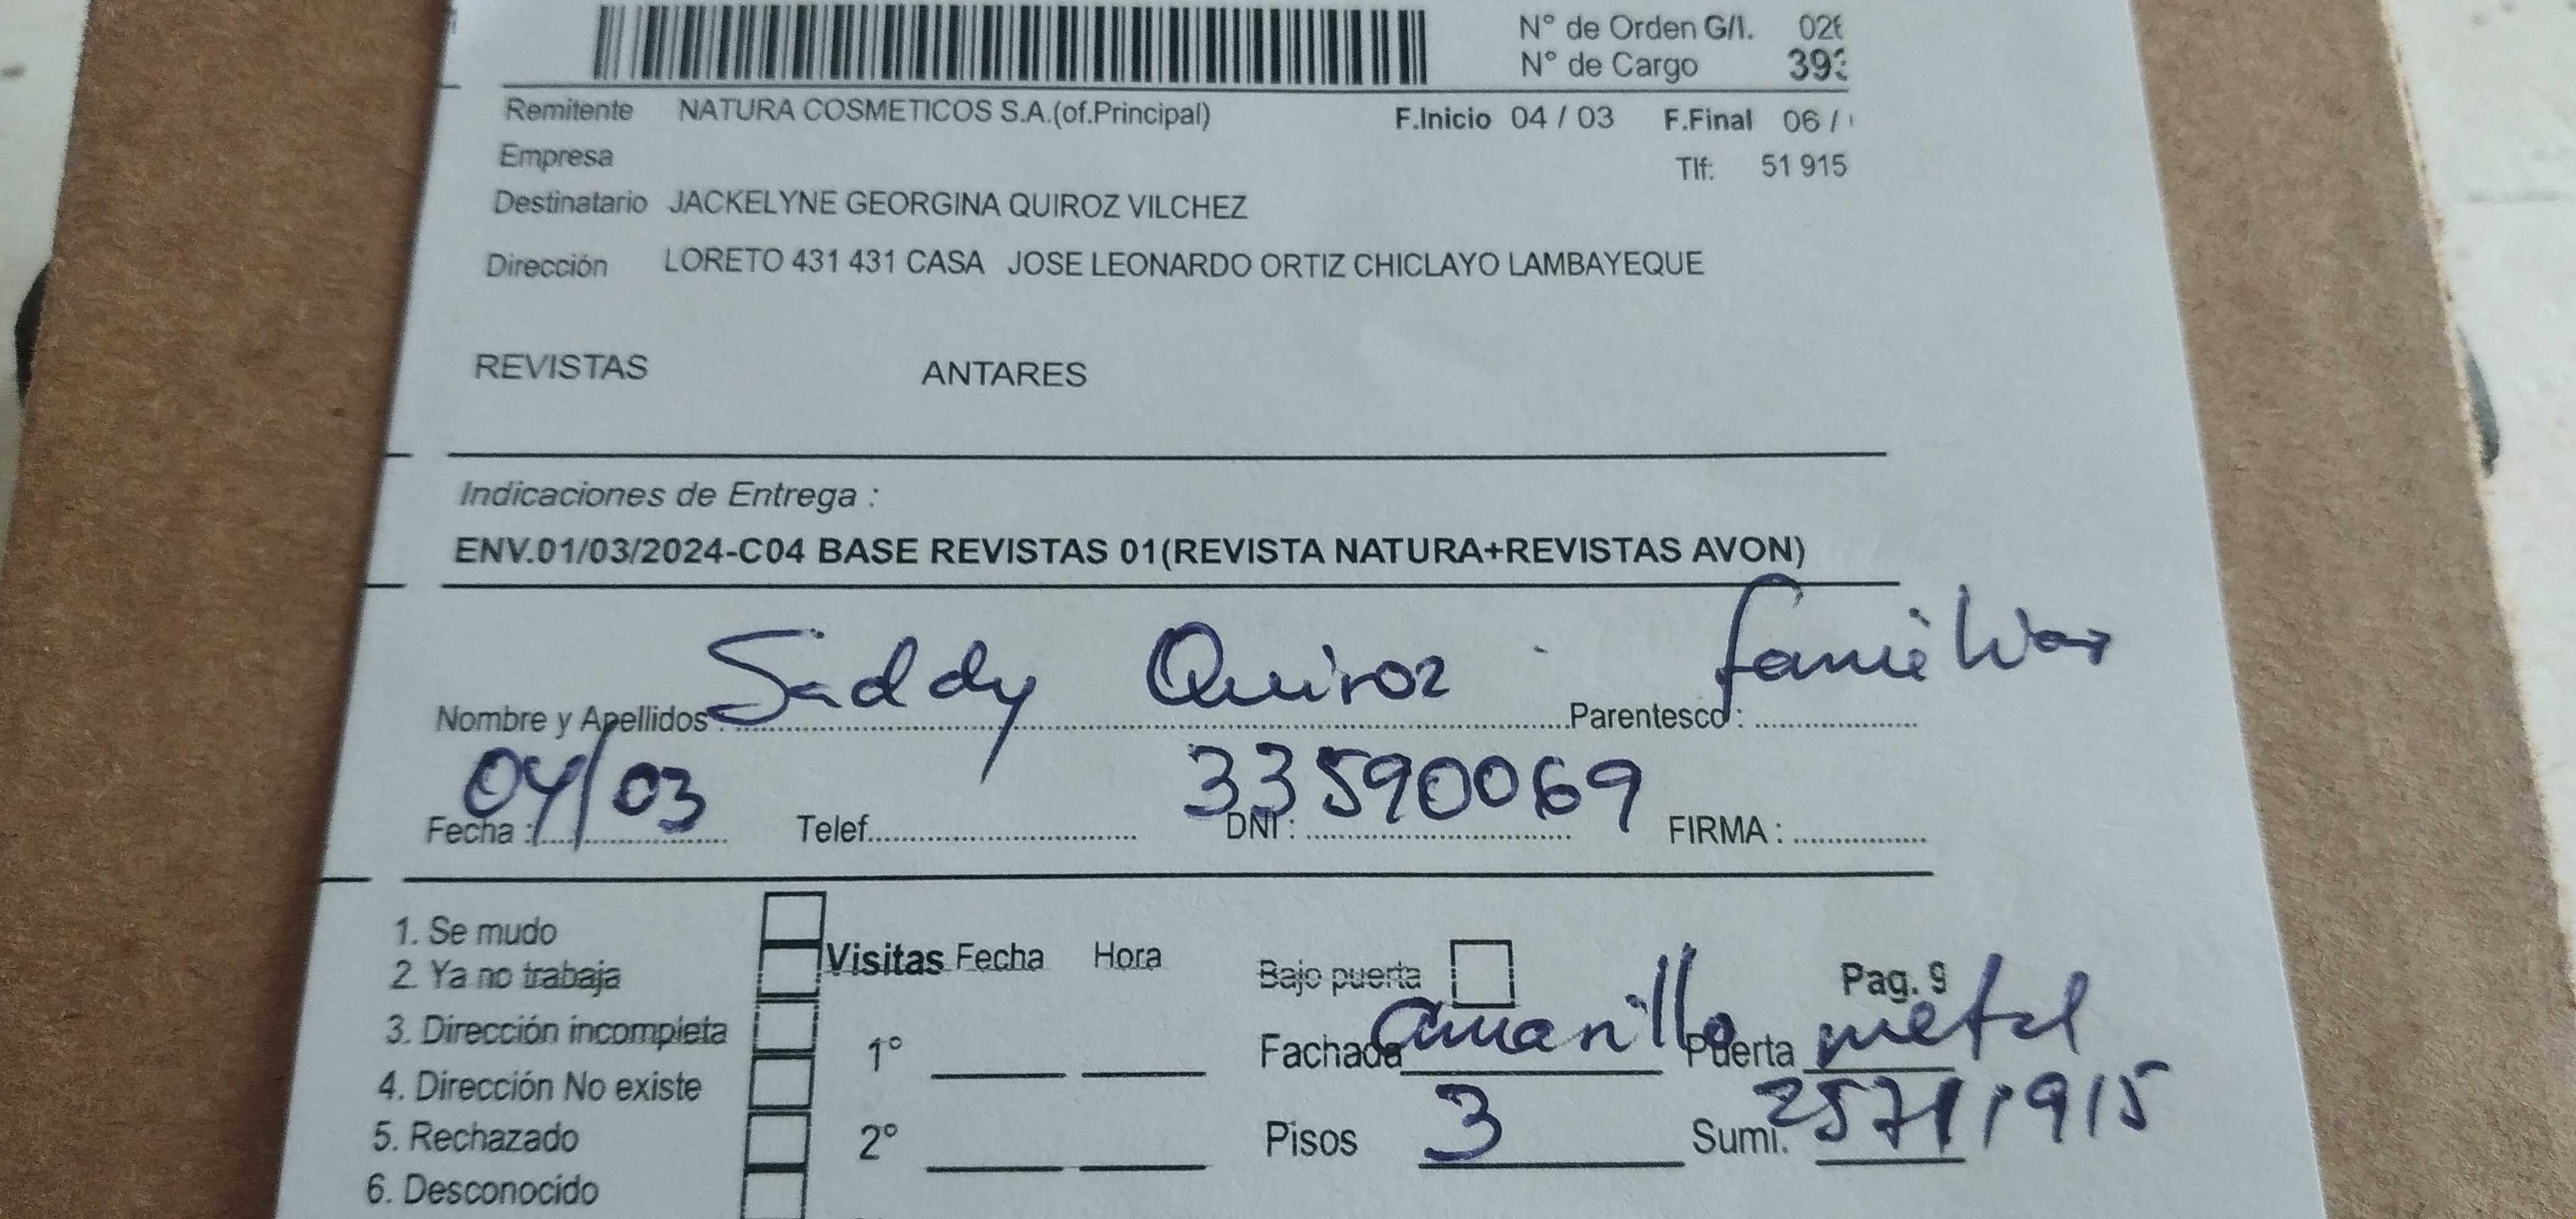 Nº de Orden G/I. 026
Nº de Cargo 393
Remitente NATURA COSMETICOS S.A.(of.Principal) F.Inicio 04 / 03 F.Final 06 /
Empresa Tlf: 51 915
Destinatario JACKELYNE GEORGINA QUIROZ VILCHEZ
Dirección LORETO 431 431 CASA JOSE LEONARDO ORTIZ CHICLAYO LAMBAYEQUE
REVISTAS ANTARES
Indicaciones de Entrega :
ENV.01/03/2024-C04 BASE REVISTAS 01(REVISTA NATURA+REVISTAS AVON)
Nombre y Apellidos : Saddy Quiroz Parentesco : familiar
Fecha : 04/03 Telef. DNI : 33590069 FIRMA :
1. Se mudo
2. Ya no trabaja Visitas Fecha Hora Bajo puerta Pag. 9
3. Dirección incompleta 1º Fachada amarillo Puerta metal
4. Dirección No existe
5. Rechazado 2º Pisos 3 Sumi.
6. Desconocido